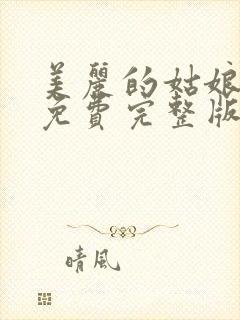 美麗的姑娘
免費完整版
晴風